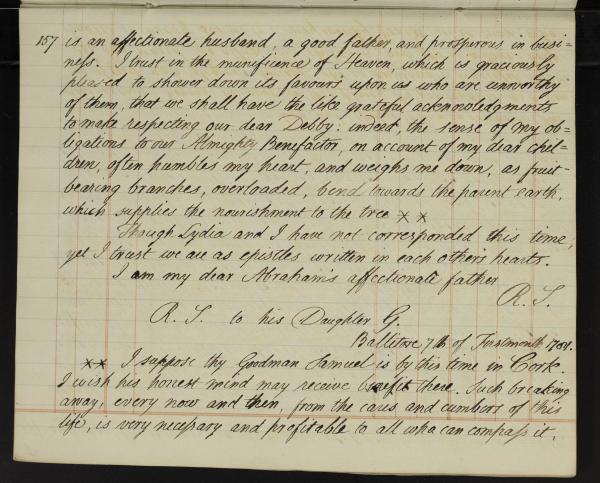 157 is an affectionate husband, a good father, and prosperous in busi=
ness. I trust in the munificence of Heaven, which is graciously
pleased to shower down its favours upon us who are unworthy
of them, that we shall have the like grateful acknowledgments
to make respecting our dear Debby: indeed, the sense of my ob=
ligations to our Almighty Benefactor, on account of my dear chil=
dren, often humbles my heart, and weighs me down, as fruit-
bearing branches, overloaded, bend towards the parent earth,
which supplies the nourishment to the tree x x
Though Lydia and I have not corresponded this time,
yet I trust we are as epistles written in each others hearts.
I am my dear Abraham's affectionate father
R. S.
R. S. to his Daughter G.
Ballitore 7th of Firstmonth
x x I suppose thy Goodman Samuel is by this time in Cork.
I wish his honest mind may receive benefit there. Such breaking
away, every now and then, from the cares and cumbers of this
life, is very necessary and profitable to all who can compass it.